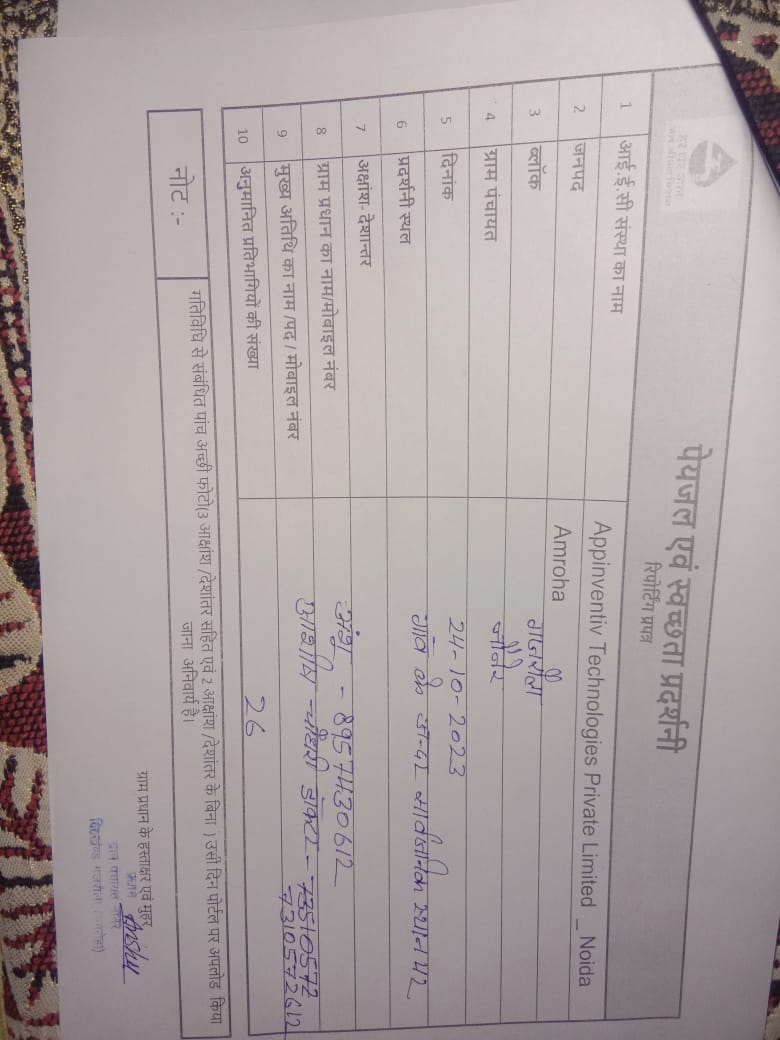 हर घर जल
जल जीवन मिशन
पेयजल एवं स्वच्छता प्रदर्शनी
रिपोर्टिंग प्रपत्र
1 आई.ई.सी संस्था का नाम Appinventiv Technologies Private Limited _ Noida
2 जनपद Amroha
3 ब्लॉक गजरौला
4 ग्राम पंचायत
5 दिनांक 24-10-2023
6 प्रदर्शनी स्थल गांव के अन्दर सार्वजनिक स्थान पर
7 अक्षांश- देशान्तर
8 ग्राम प्रधान का नाम/मोबाइल नंबर अंशु - 8957430612
9 मुख्य अतिथि का नाम /पद / मोबाइल नंबर आशीष चौधरी डॉक्टर -
7310572612
10 अनुमानित प्रतिभागियों की संख्या 26
नोट :- गतिविधि से संबंधित पांच अच्छी फोटो(3 आक्षांश /देशांतर सहित एवं 2 आक्षांश /देशांतर के बिना ) उसी दिन पोर्टल पर अपलोड किया
जाना अनिवार्य है।
ग्राम प्रधान के हस्ताक्षर एवं मुहर
प्रधान
ग्राम पंचायत